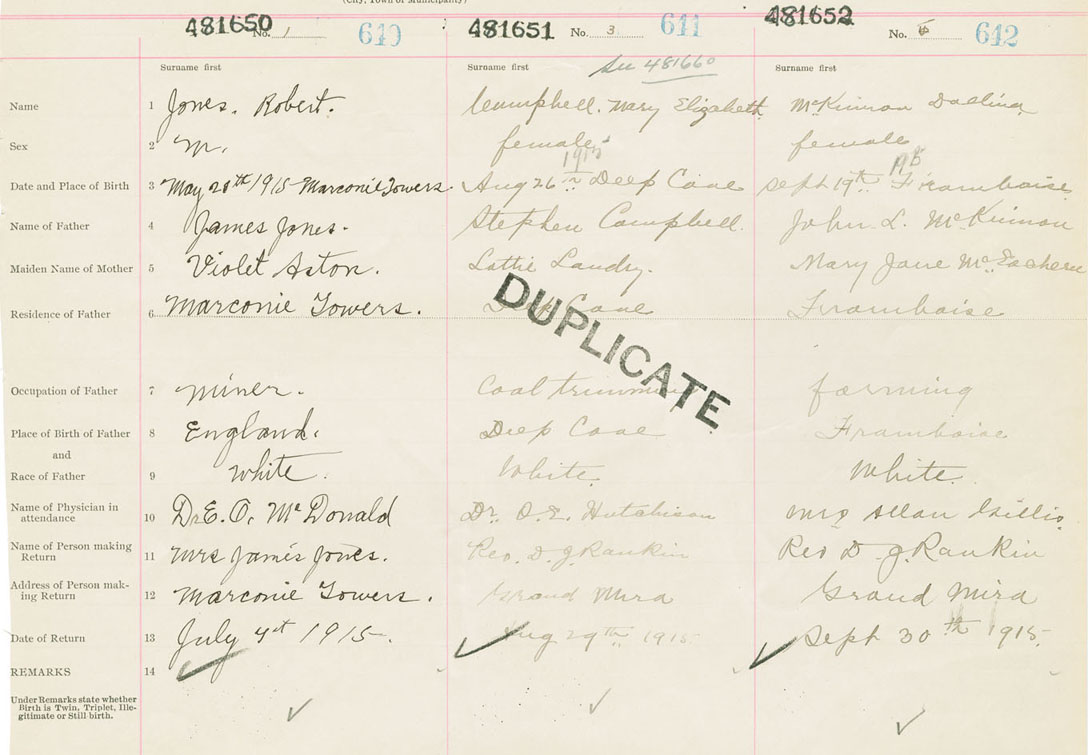 (City, Town or Municipality)
481650 No. 1 640 481651 No. 3 641 481652 No. 5 642
See 481660
Surname first Surname first Surname first
Name 1 Jones. Robert. Campbell. Mary Elizabeth McKinnon
Sex 2 M. female female
1915
Date and Place of Birth 3 May 20th 1915 Marconie Towers Aug 26th Deep Cove Sept 19th Framboise
Name of Father 4 James Jones. Stephen Campbell. John L. McKinnon
Maiden Name of Mother 5 Violet Aston. Lottie Landry. Mary Jane McEachern
Residence of Father 6 Marconie Towers. Deep Cove Framboise
DUPLICATE
Occupation of Father 7 Miner. Coal trimming farming
Place of Birth of Father 8 England. Deep Cove Framboise
and
Race of Father 9 White. White. White.
Name of Physician in
attendance 10 Dr E. O. McDonald Dr. O.E. Hutchison Mrs Allan Gillis
Name of Person making
Return 11 Mrs James Jones. Rev. D. J. Rankin Rev D. J. Rankin
Address of Person mak-
ing Return 12 Marconie Towers. Grand Mira Grand Mira
Date of Return 13 July 4st 1915. Aug 29th 1915 Sept 30th 1915.
REMARKS 14
Under Remarks state whether
Birth is Twin, Triplet, Ille-
gitimate or Still birth.